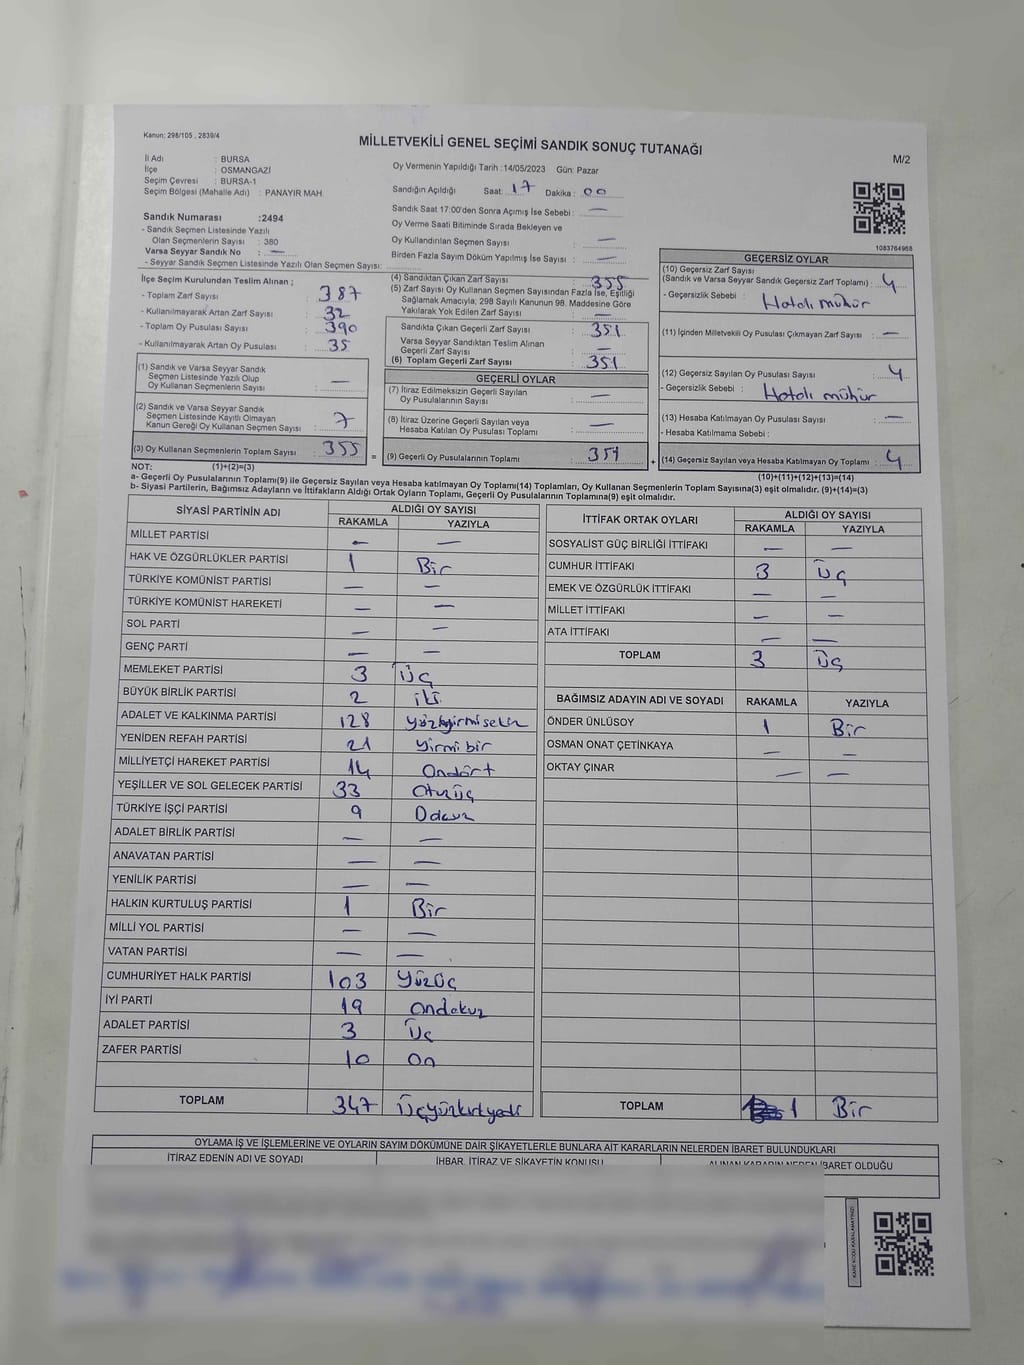 Kanun: 298/105 , 2839/4
MİLLETVEKİLİ GENEL SEÇİMİ SANDIK SONUÇ TUTANAĞI
M/2
İl Adı : BURSA
İlçe : OSMANGAZİ
Seçim Çevresi : BURSA-1
Seçim Bölgesi (Mahalle Adı) : PANAYIR MAH.
Oy Vermenin Yapıldığı Tarih : 14/05/2023 Gün: Pazar
Sandığın Açıldığı Saat: 17 Dakika : 00
Sandık Saat 17:00'den Sonra Açımış İse Sebebi : —
Oy Verme Saati Bitiminde Sırada Bekleyen ve
Oy Kullandırılan Seçmen Sayısı : —
Birden Fazla Sayım Döküm Yapılmış İse Sayısı : —
1083764968
Sandık Numarası :2494
- Sandık Seçmen Listesinde Yazılı
Olan Seçmenlerin Sayısı : 380
Varsa Seyyar Sandık No : —
- Seyyar Sandık Seçmen Listesinde Yazılı Olan Seçmen Sayısı:
İlçe Seçim Kurulundan Teslim Alınan ;
- Toplam Zarf Sayısı : 387
- Kullanılmayarak Artan Zarf Sayısı : 32
- Toplam Oy Pusulası Sayısı : 390
- Kullanılmayarak Artan Oy Pusulası : 35
(1) Sandık ve Varsa Seyyar Sandık
Seçmen Listesinde Yazılı Olup
Oy Kullanan Seçmenlerin Sayısı : —
(2) Sandık ve Varsa Seyyar Sandık
Seçmen Listesinde Kayıtlı Olmayan
Kanun Gereği Oy Kullanan Seçmen Sayısı : 7
(3) Oy Kullanan Seçmenlerin Toplam Sayısı : 355 =
(4) Sandıktan Çıkan Zarf Sayısı : 355
(5) Zarf Sayısı Oy Kullanan Seçmen Sayısından Fazla İse, Eşitliği
Sağlamak Amacıyla; 298 Sayılı Kanunun 98. Maddesine Göre
Yakılarak Yok Edilen Zarf Sayısı : —
Sandıkta Çıkan Geçerli Zarf Sayısı : 351
Varsa Seyyar Sandıktan Teslim Alınan
Geçerli Zarf Sayısı : —
(6) Toplam Geçerli Zarf Sayısı : 351
GEÇERLİ OYLAR
(7) İtiraz Edilmeksizin Geçerli Sayılan
Oy Pusulalarının Sayısı : —
(8) İtiraz Üzerine Geçerli Sayılan veya
Hesaba Katılan Oy Pusulası Toplamı : —
(9) Geçerli Oy Pusulalarının Toplamı : 351 +
GEÇERSİZ OYLAR
(10) Geçersiz Zarf Sayısı
(Sandık ve Varsa Seyyar Sandık Geçersiz Zarf Toplamı) : 4
- Geçersizlik Sebebi : Hatalı mühür
(11) İçinden Milletvekili Oy Pusulası Çıkmayan Zarf Sayısı : —
(12) Geçersiz Sayılan Oy Pusulası Sayısı : 4
- Geçersizlik Sebebi : Hatalı mühür
(13) Hesaba Katılmayan Oy Pusulası Sayısı : —
- Hesaba Katılmama Sebebi :
(14) Geçersiz Sayılan veya Hesaba Katılmayan Oy Toplamı : 4
NOT: (1)+(2)=(3) (10)+(11)+(12)+(13)=(14)
a- Geçerli Oy Pusulalarının Toplamı(9) ile Geçersiz Sayılan veya Hesaba katılmayan Oy Toplamı(14) Toplamları, Oy Kullanan Seçmenlerin Toplam Sayısına(3) eşit olmalıdır. (9)+(14)=(3)
b- Siyasi Partilerin, Bağımsız Adayların ve İttifakların Aldığı Ortak Oyların Toplamı, Geçerli Oy Pusulalarının Toplamına(9) eşit olmalıdır.
SİYASİ PARTİNİN ADI ALDIĞI OY SAYISI
RAKAMLA YAZIYLA
MİLLET PARTİSİ — —
HAK VE ÖZGÜRLÜKLER PARTİSİ 1 Bir
TÜRKİYE KOMÜNİST PARTİSİ — —
TÜRKİYE KOMÜNİST HAREKETİ — —
SOL PARTİ — —
GENÇ PARTİ — —
MEMLEKET PARTİSİ 3 Üç
BÜYÜK BİRLİK PARTİSİ 2 iki
ADALET VE KALKINMA PARTİSİ 128 yüzyirmisekiz
YENİDEN REFAH PARTİSİ 21 yirmi bir
MİLLİYETÇİ HAREKET PARTİSİ 14 Ondört
YEŞİLLER VE SOL GELECEK PARTİSİ 33 Otuzüç
TÜRKİYE İŞÇİ PARTİSİ 9 Dokuz
ADALET BİRLİK PARTİSİ — —
ANAVATAN PARTİSİ — —
YENİLİK PARTİSİ — —
HALKIN KURTULUŞ PARTİSİ 1 Bir
MİLLİ YOL PARTİSİ — —
VATAN PARTİSİ — —
CUMHURİYET HALK PARTİSİ 103 Yüzüç
İYİ PARTİ 19 Ondokuz
ADALET PARTİSİ 3 Üç
ZAFER PARTİSİ 10 On
TOPLAM 347 Üçyüzkırkyedi
İTTİFAK ORTAK OYLARI ALDIĞI OY SAYISI
RAKAMLA YAZIYLA
SOSYALİST GÜÇ BİRLİĞİ İTTİFAKI — —
CUMHUR İTTİFAKI 3 Üç
EMEK VE ÖZGÜRLÜK İTTİFAKI — —
MİLLET İTTİFAKI — —
ATA İTTİFAKI — —
TOPLAM 3 Üç
BAĞIMSIZ ADAYIN ADI VE SOYADI RAKAMLA YAZIYLA
ÖNDER ÜNLÜSOY 1 Bir
OSMAN ONAT ÇETİNKAYA — —
OKTAY ÇINAR — —
TOPLAM 1 Bir
OYLAMA İŞ VE İŞLEMLERİNE VE OYLARIN SAYIM DÖKÜMÜNE DAİR ŞİKAYETLERLE BUNLARA AİT KARARLARIN NELERDEN İBARET BULUNDUKLARI
İTİRAZ EDENİN ADI VE SOYADI İHBAR, İTİRAZ VE ŞİKAYETİN KONUSU ALINAN KARARIN NEDEN İBARET OLDUĞU
KARE KODU KARALAMAYINIZ!